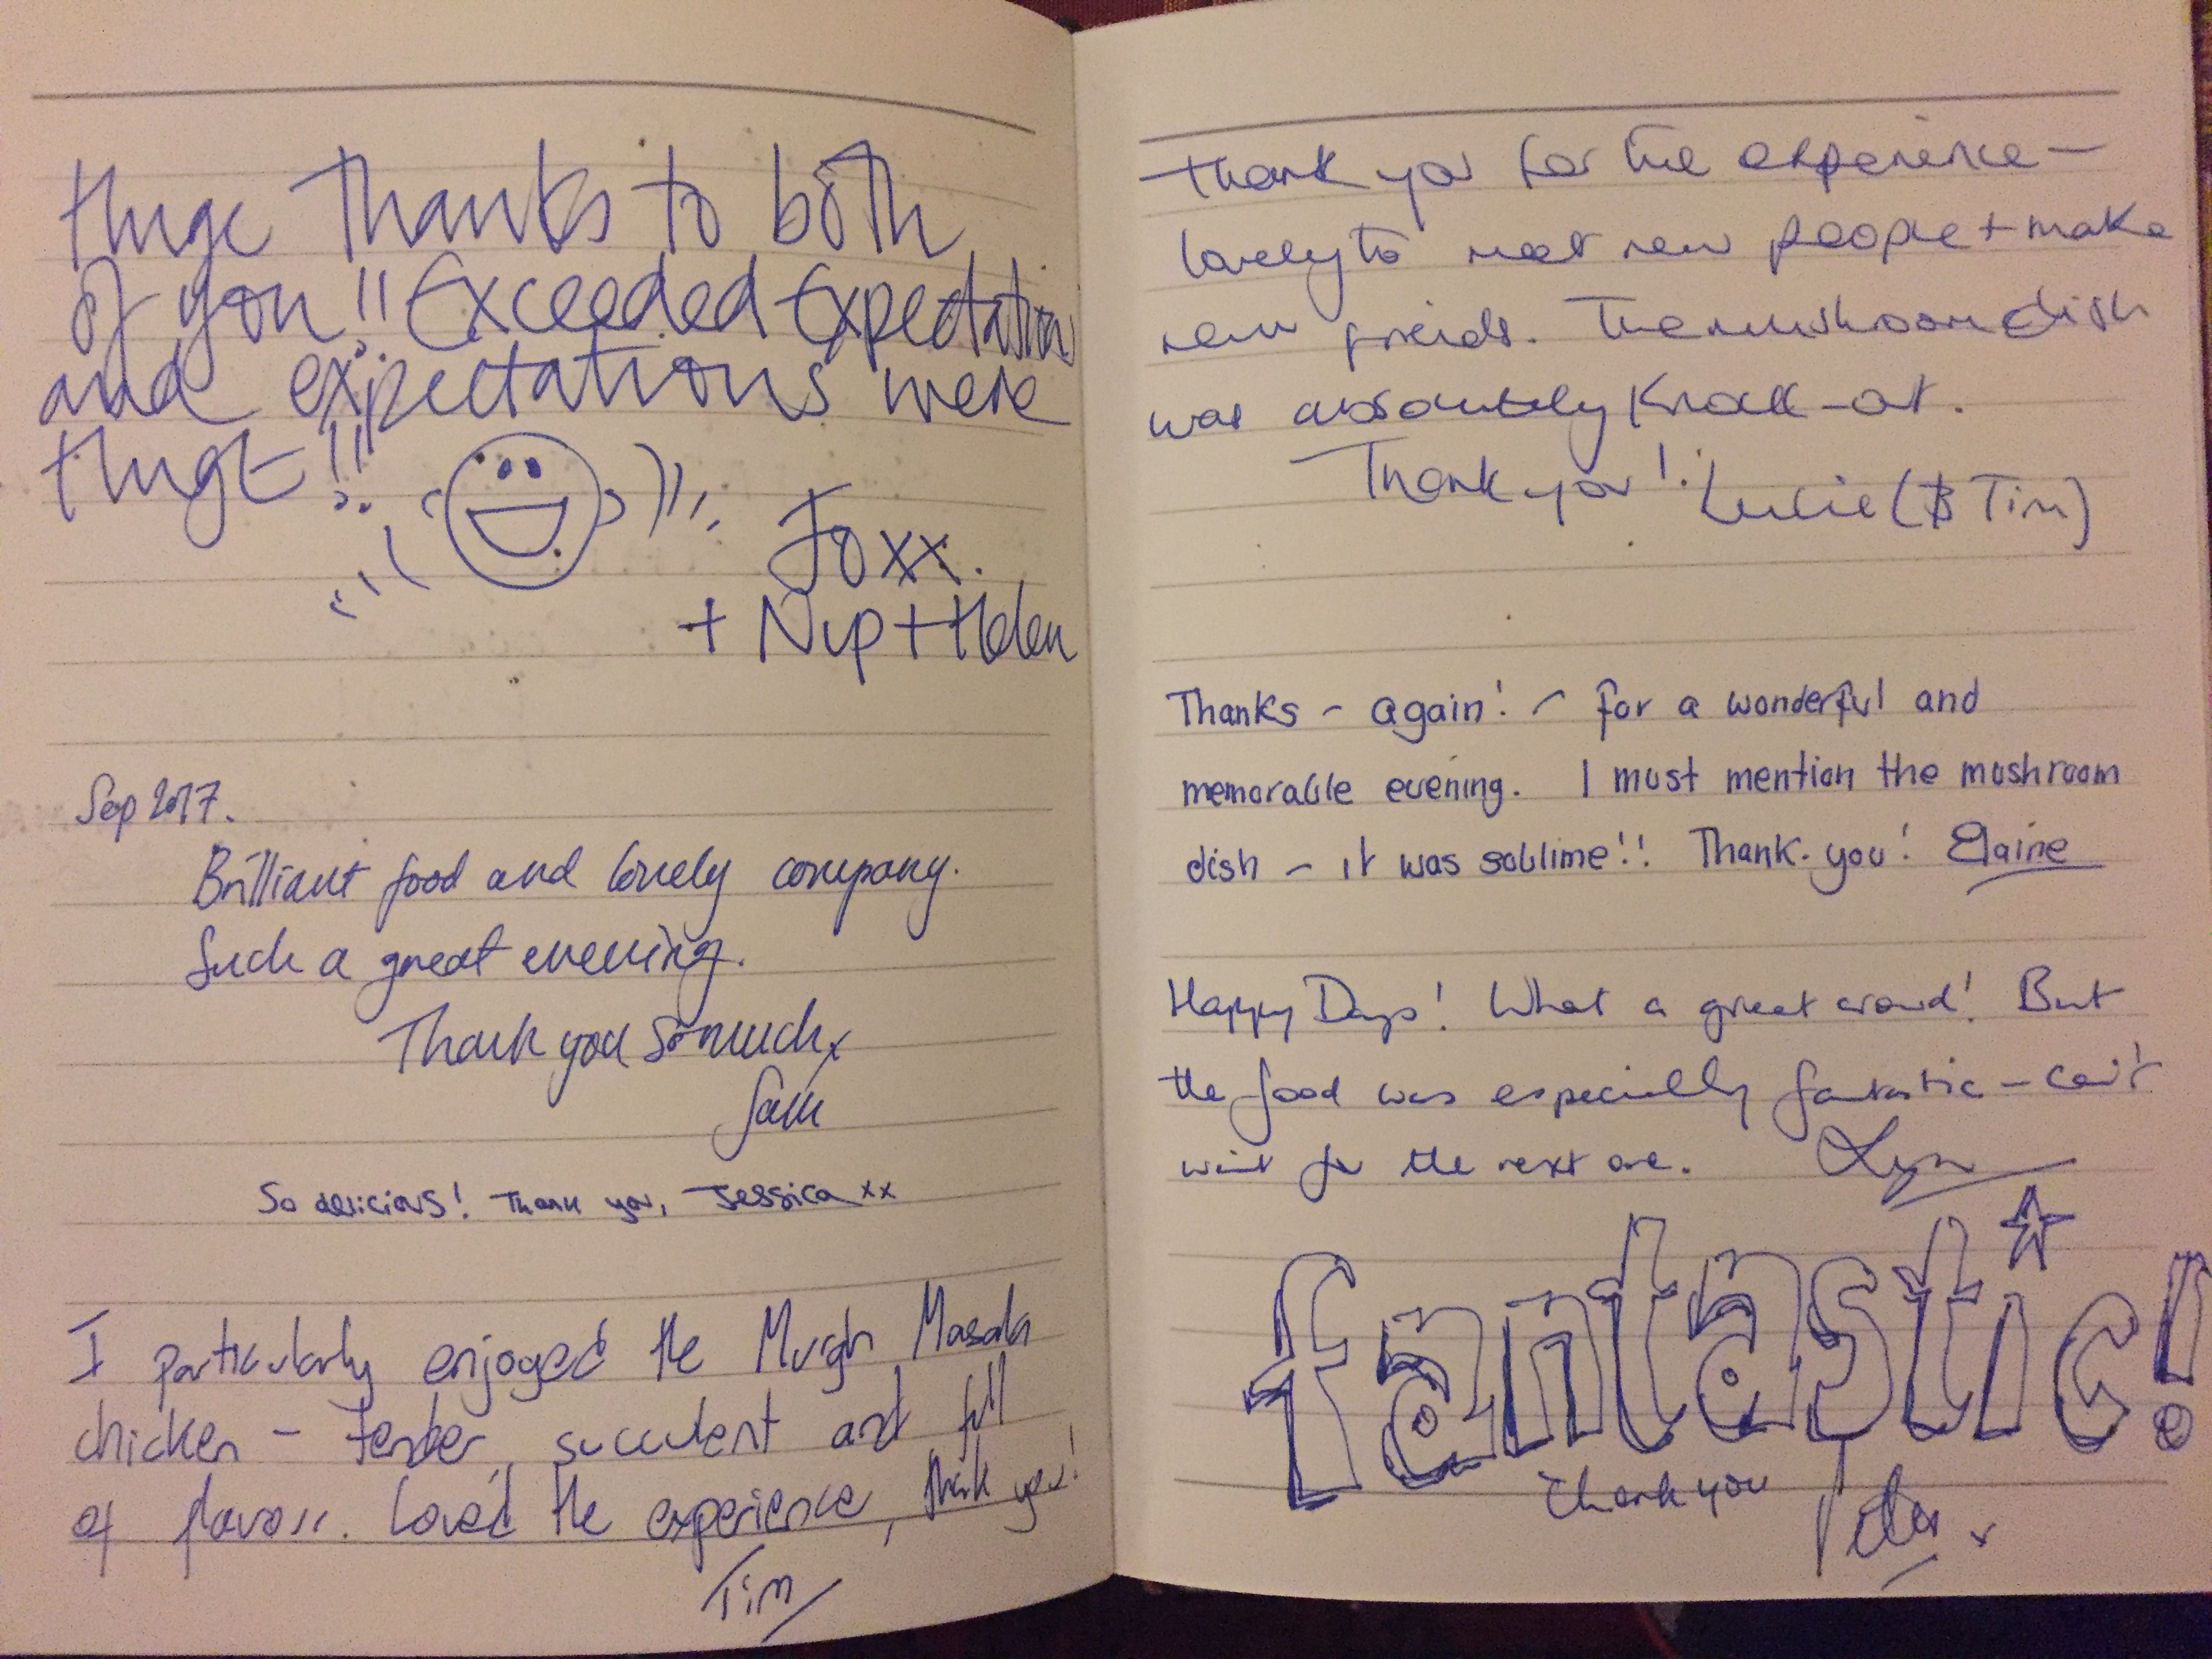 Huge Thanks to both
of you!! Exceeded Expectation
and expectations were
Huge!!
Jo xx.
+ Nip + Helen
Sep 2017.
Brilliant food and lovely company.
Such a great evening.
Thank you so much x
Sam
So delicious! Thank you, Jessica xx
I particularly enjoyed the Murgh Masala
chicken - tender, succulent and full
of flavour. Loved the experience, thank you!
Tim
Thank you for the experience -
lovely to meet new people + make
new friends. The mushroom dish
was absolutely knock-out.
Thank you! Lucie (& Tim)
Thanks - again! - for a wonderful and
memorable evening. I must mention the mushroom
dish - it was sublime!! Thank-you! Elaine
Happy Days! What a great crowd! But
the food was especially fantastic - can't
wait for the next one. Lyn
fantastic!
Thank you
Peter x